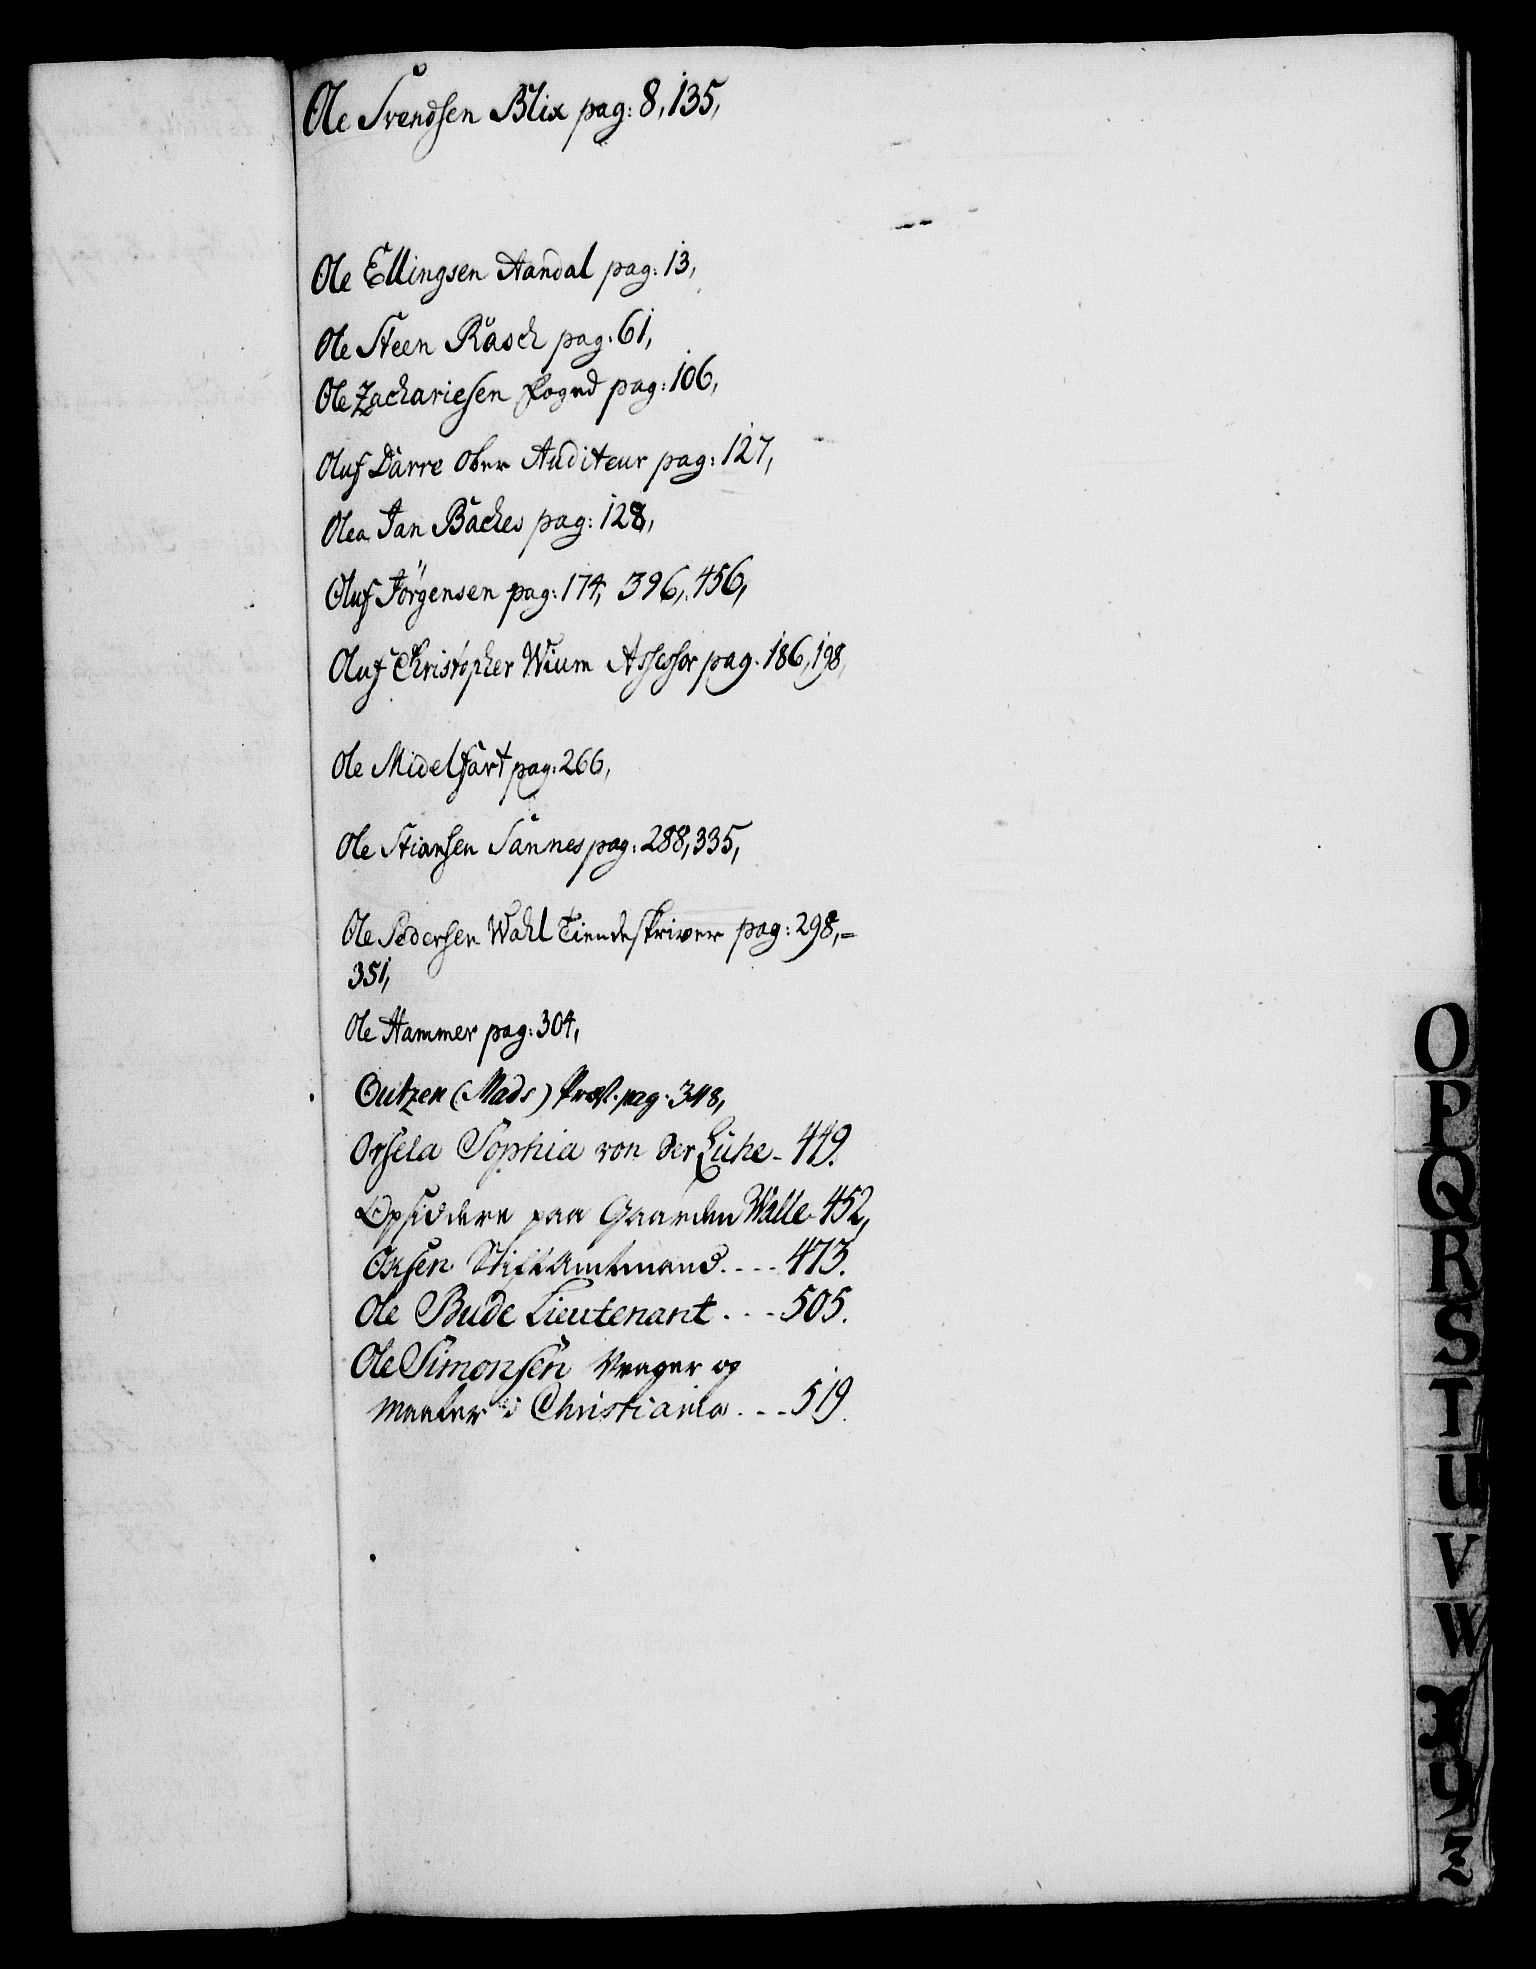 Ole Svendsen Blix pag: 8, 135,
Ole Ellingsen Aandal pag: 13,
Ole Steen Rasch pag: 61,
Ole Zachariesen Fogned pag: 106,
Oluf Darre Ober Auditeur pag: 127,
Olea Jan Baches pag: 128,
Oluf Jörgensen pag: 174, 396, 456,
Oluf Christopher Wium Assessor pag. 186, 198,
Ole Midelfart pag: 266,
Ole Stiansen Sannes pag: 288, 335,
Ole Pedersen Wahl Tiendeskriver pag: 298,=
351,
Ole Hammer pag: 304,
Outzen (Mads) Præst. pag. 348,
Orsela Sophia von der Lühe - 449.
Opsiddere paa Gaarden Walle 452,
Oxsen Stiftamtmand. - - - 473.
Ole Bude Lieutenant . - - 505.
Ole Simonsen Vrager og
Maaler i Christiania. - - 519.
O
P
Q
R
S
T
U
V
W
X
Y
Z